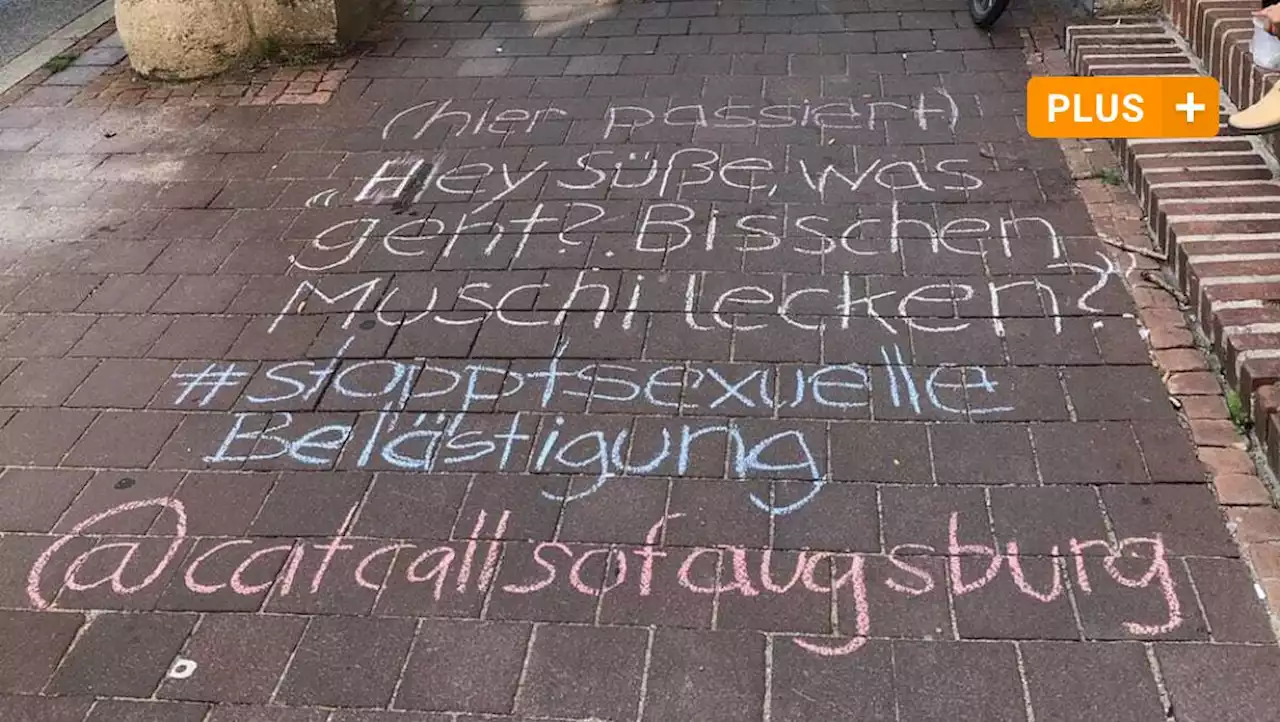 PLUS +
(hier passiert)
„Hey Süße, was
geht? Bisschen
Muschi lecken?"
#stopptsexuelle
Belästigung
@catcallsofaugsburg